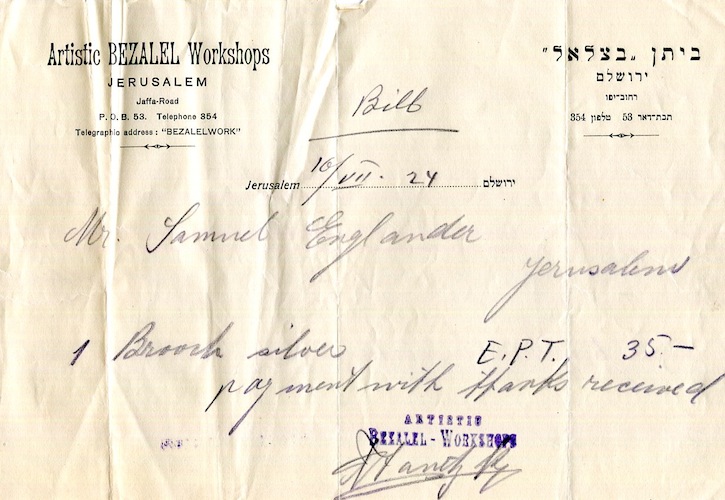 Artistic BEZALEL Workshops
JERUSALEM
Jaffa-Road
P. O. B. 53. Telephone 354
Telegraphic address : "BEZALELWORK"
ביתן „בצלאל"
ירושלם
רחוב-יפו
תבת-דאר 53 טלפון 354
Bill
Jerusalem 10/VII. 24 ירושלם
Mr. Samuel Englander
Jerusalem
1 Brooch silver E.P.T. 35.—
payment with thanks received
ARTISTIC
BEZALEL - WORKSHOPS